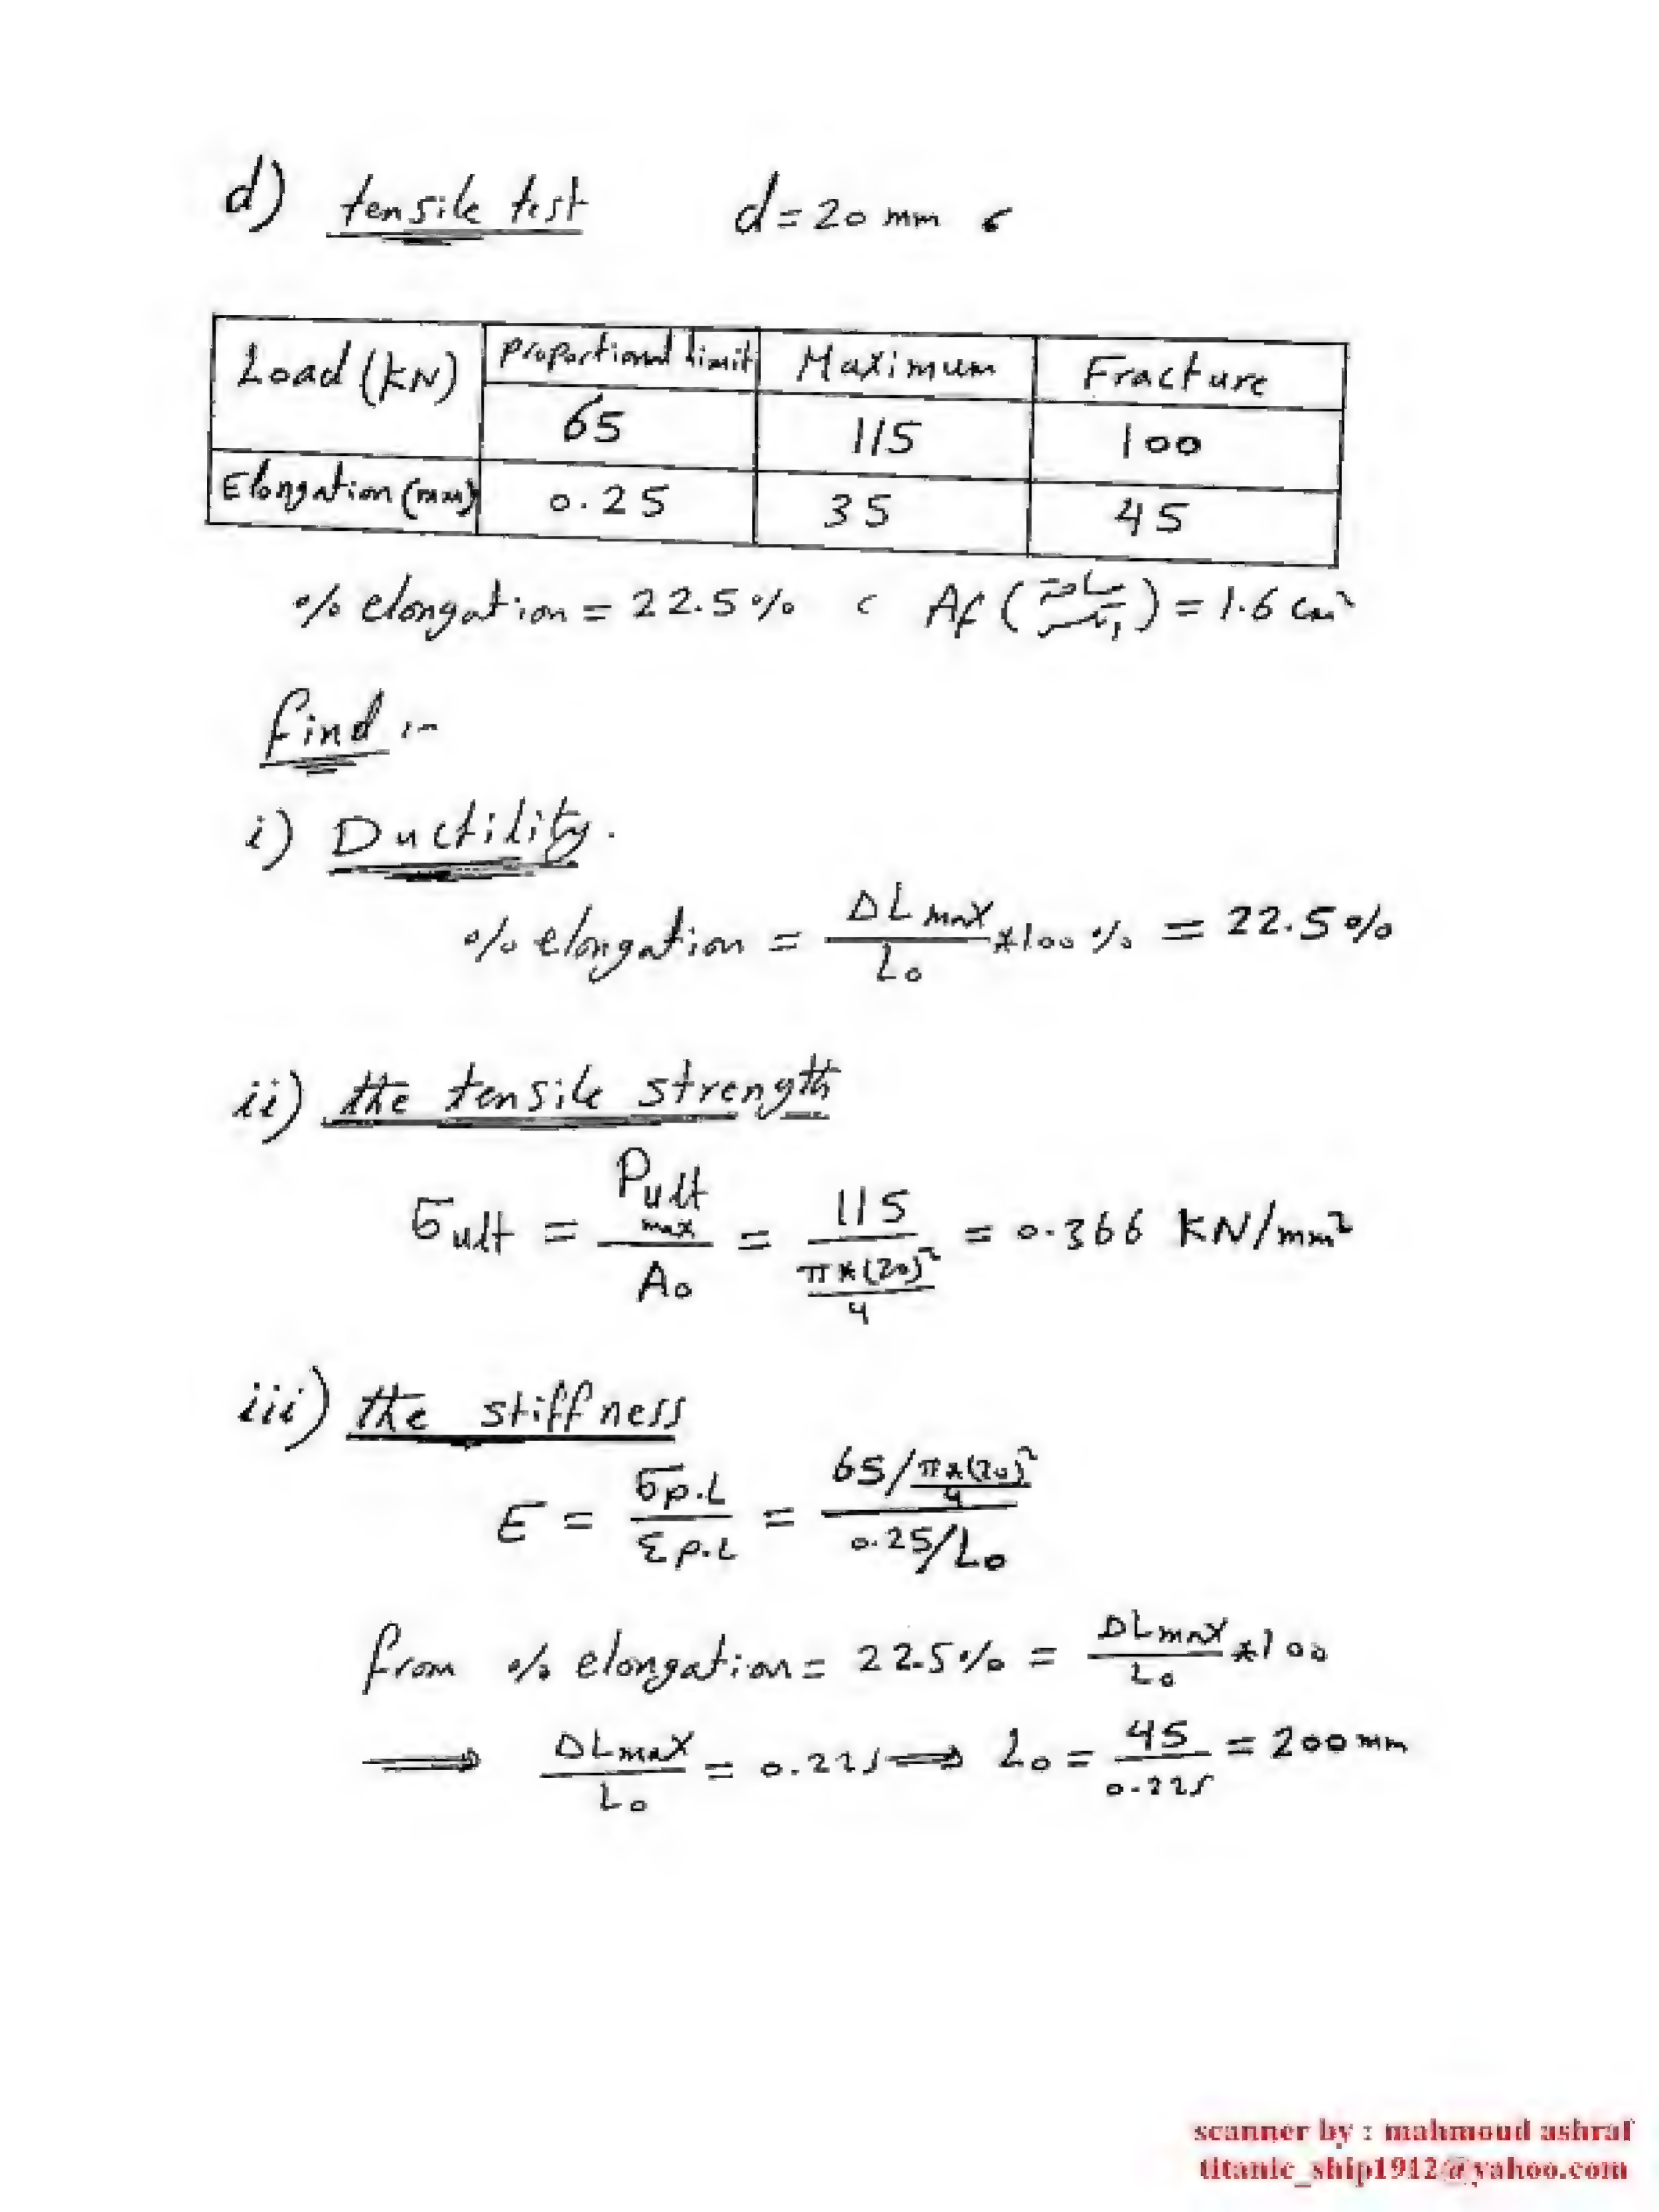 d) tensile test d = 20 mm ،
Load (kN) proportional limit Maximum Fracture
65 115 100
Elongation (mm) 0.25 35 45
% elongation = 22.5 % ، Af ( ) = 1.6 cm²
find :-
i) Ductility.
% elongation = ΔL max / L₀ *100 % = 22.5 %
ii) the tensile strength
σult = Pult max / A₀ = 115 / (π*(20)²/4) = 0.366 KN/mm²
iii) the stiffness
E = σp.L / εp.L = (65/(π*(20)²/4)) / (0.25/L₀)
from % elongation = 22.5 % = ΔL max / L₀ *100
⟹ ΔL max / L₀ = 0.225 ⟹ L₀ = 45 / 0.225 = 200 mm
scanner by : mahmoud ashraf
titanic_ship1912@yahoo.com